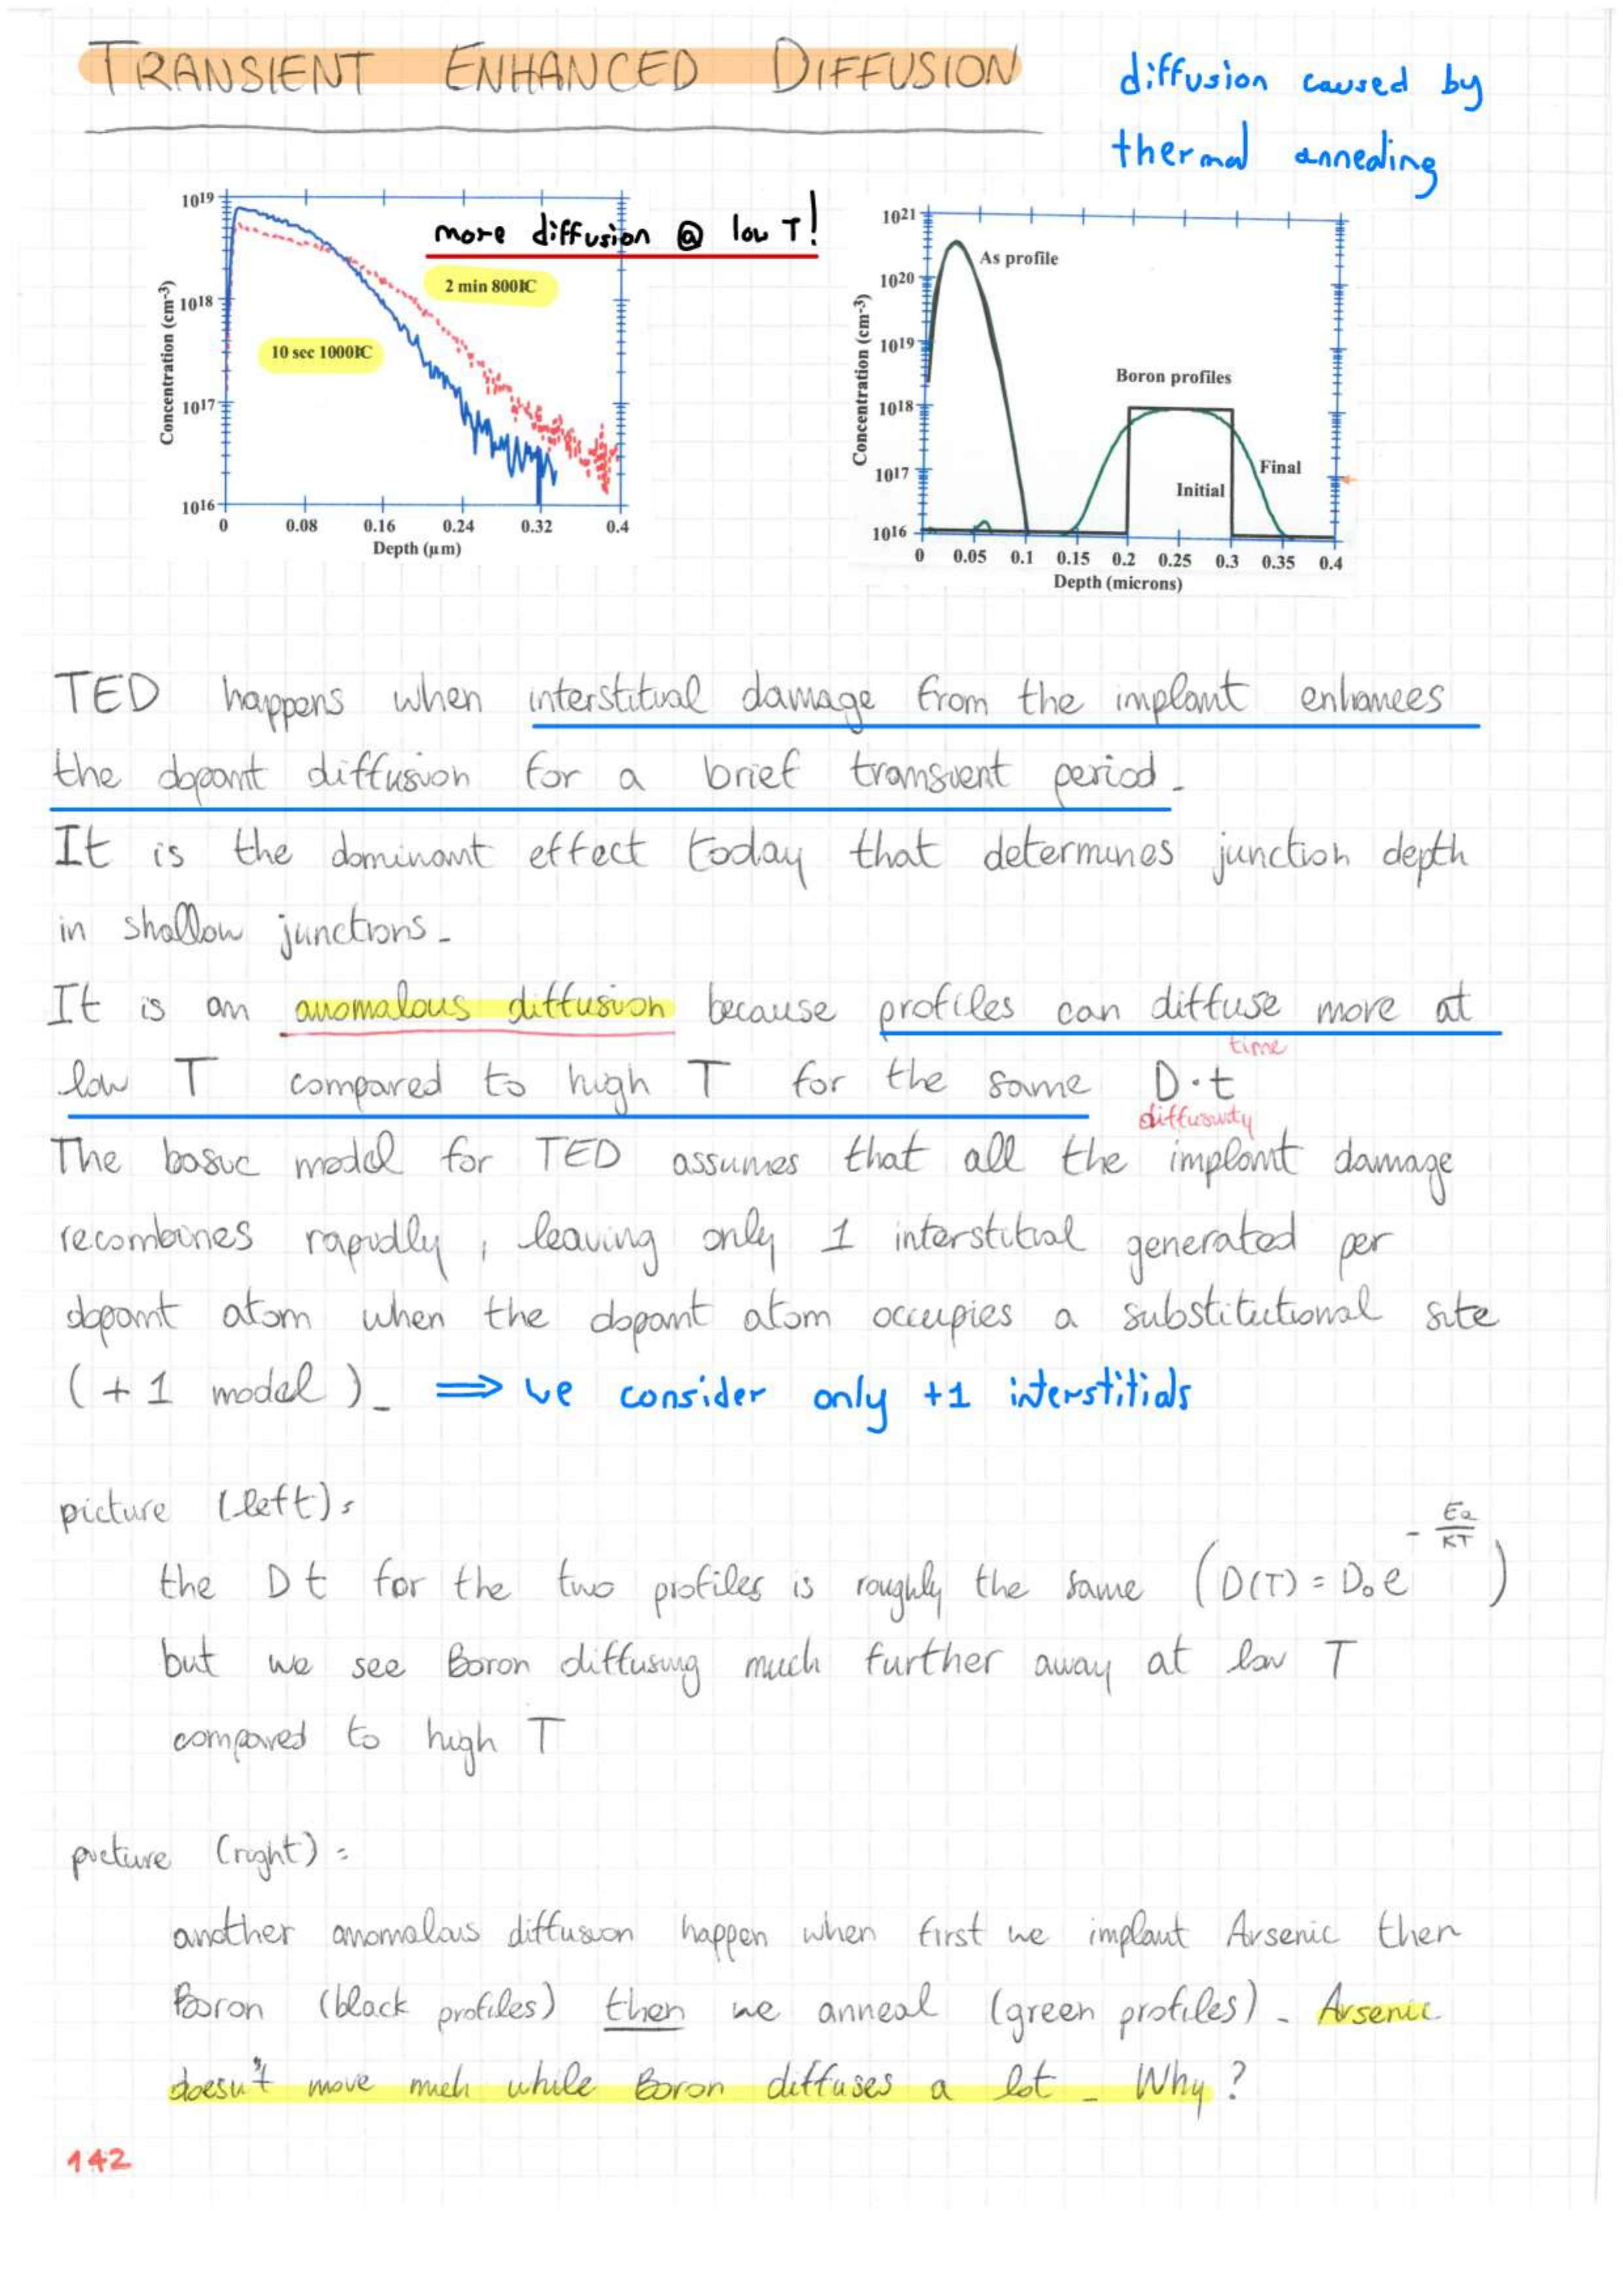 TRANSIENT ENHANCED DIFFUSION
diffusion caused by
thermal annealing
more diffusion @ low T!
2 min 800°C
10 sec 1000°C
Concentration (cm-3)
10^19
10^18
10^17
10^16
0 0.08 0.16 0.24 0.32 0.4
Depth (µm)
As profile
Boron profiles
Final
Initial
Concentration (cm-3)
10^21
10^20
10^19
10^18
10^17
10^16
0 0.05 0.1 0.15 0.2 0.25 0.3 0.35 0.4
Depth (microns)
TED happens when interstitial damage from the implant enhances
the dopant diffusion for a brief transient period.
It is the dominant effect today that determines junction depth
in shallow junctions.
It is an anomalous diffusion because profiles can diffuse more at
time
low T compared to high T for the same D·t
diffusivity
The basic model for TED assumes that all the implant damage
recombines rapidly, leaving only 1 interstitial generated per
dopant atom when the dopant atom occupies a substitutional site
(+1 model). ⇒ we consider only +1 interstitials
picture (left):
the Dt for the two profiles is roughly the same (D(T) = D₀e^(-Ea/KT))
but we see Boron diffusing much further away at low T
compared to high T
picture (right):
another anomalous diffusion happen when first we implant Arsenic then
Boron (black profiles) then we anneal (green profiles). Arsenic
doesn't move much while Boron diffuses a lot. Why?
142